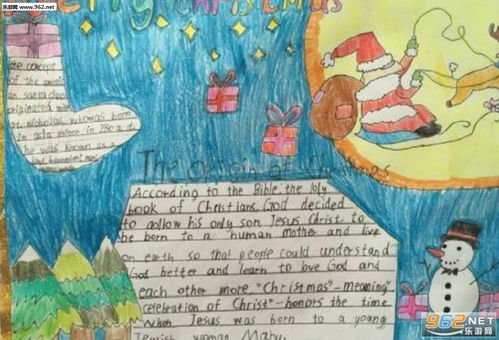 www.962.net
Merry Christmas
the concept
of the americ
an santa claus
originated
st. nicholas, whowas born
in 280 a.d.
he was known as a
The origin of Christmas
According to the Bible, the holy
book of Christians, God decided
to aollow his only son, Jesus Christ, to
be born to a human mother and live
on earth so that people could understand
God better and learn to love God and
each other more. "Christmas"-meaning
"celebration of Christ"-honors the time
When Jesus was born to a young
Jewish woman Mary.
962.NET
乐游网